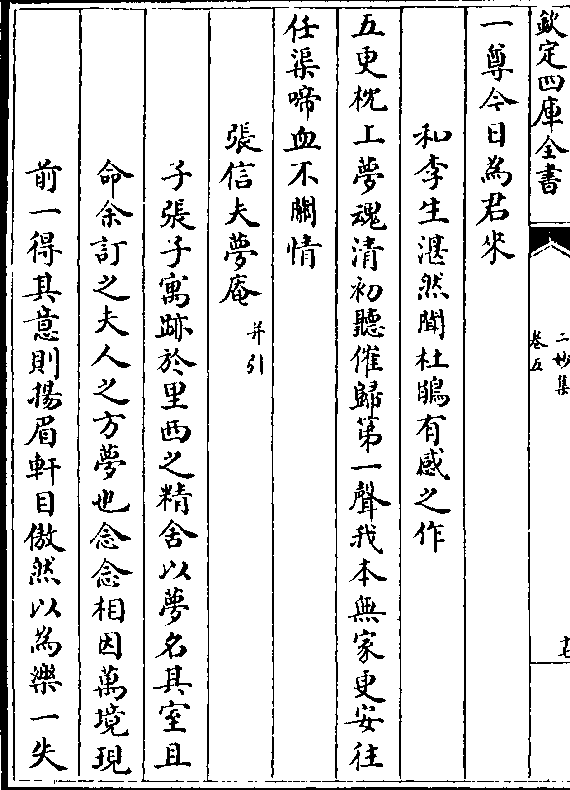 欽定四庫全書
二妙集
卷五
十七
一尊今日為君來
和李生湛然聞杜鵑有感之作
五更枕上夢魂清初聽催歸第一聲我本無家更安往
任渠啼血不關情
張信夫夢庵并引
子張子寓跡於里西之精舍以夢名其室且
命余訂之夫人之方夢也念念相因萬境現
前一得其意則揚眉軒目傲然以為樂一失